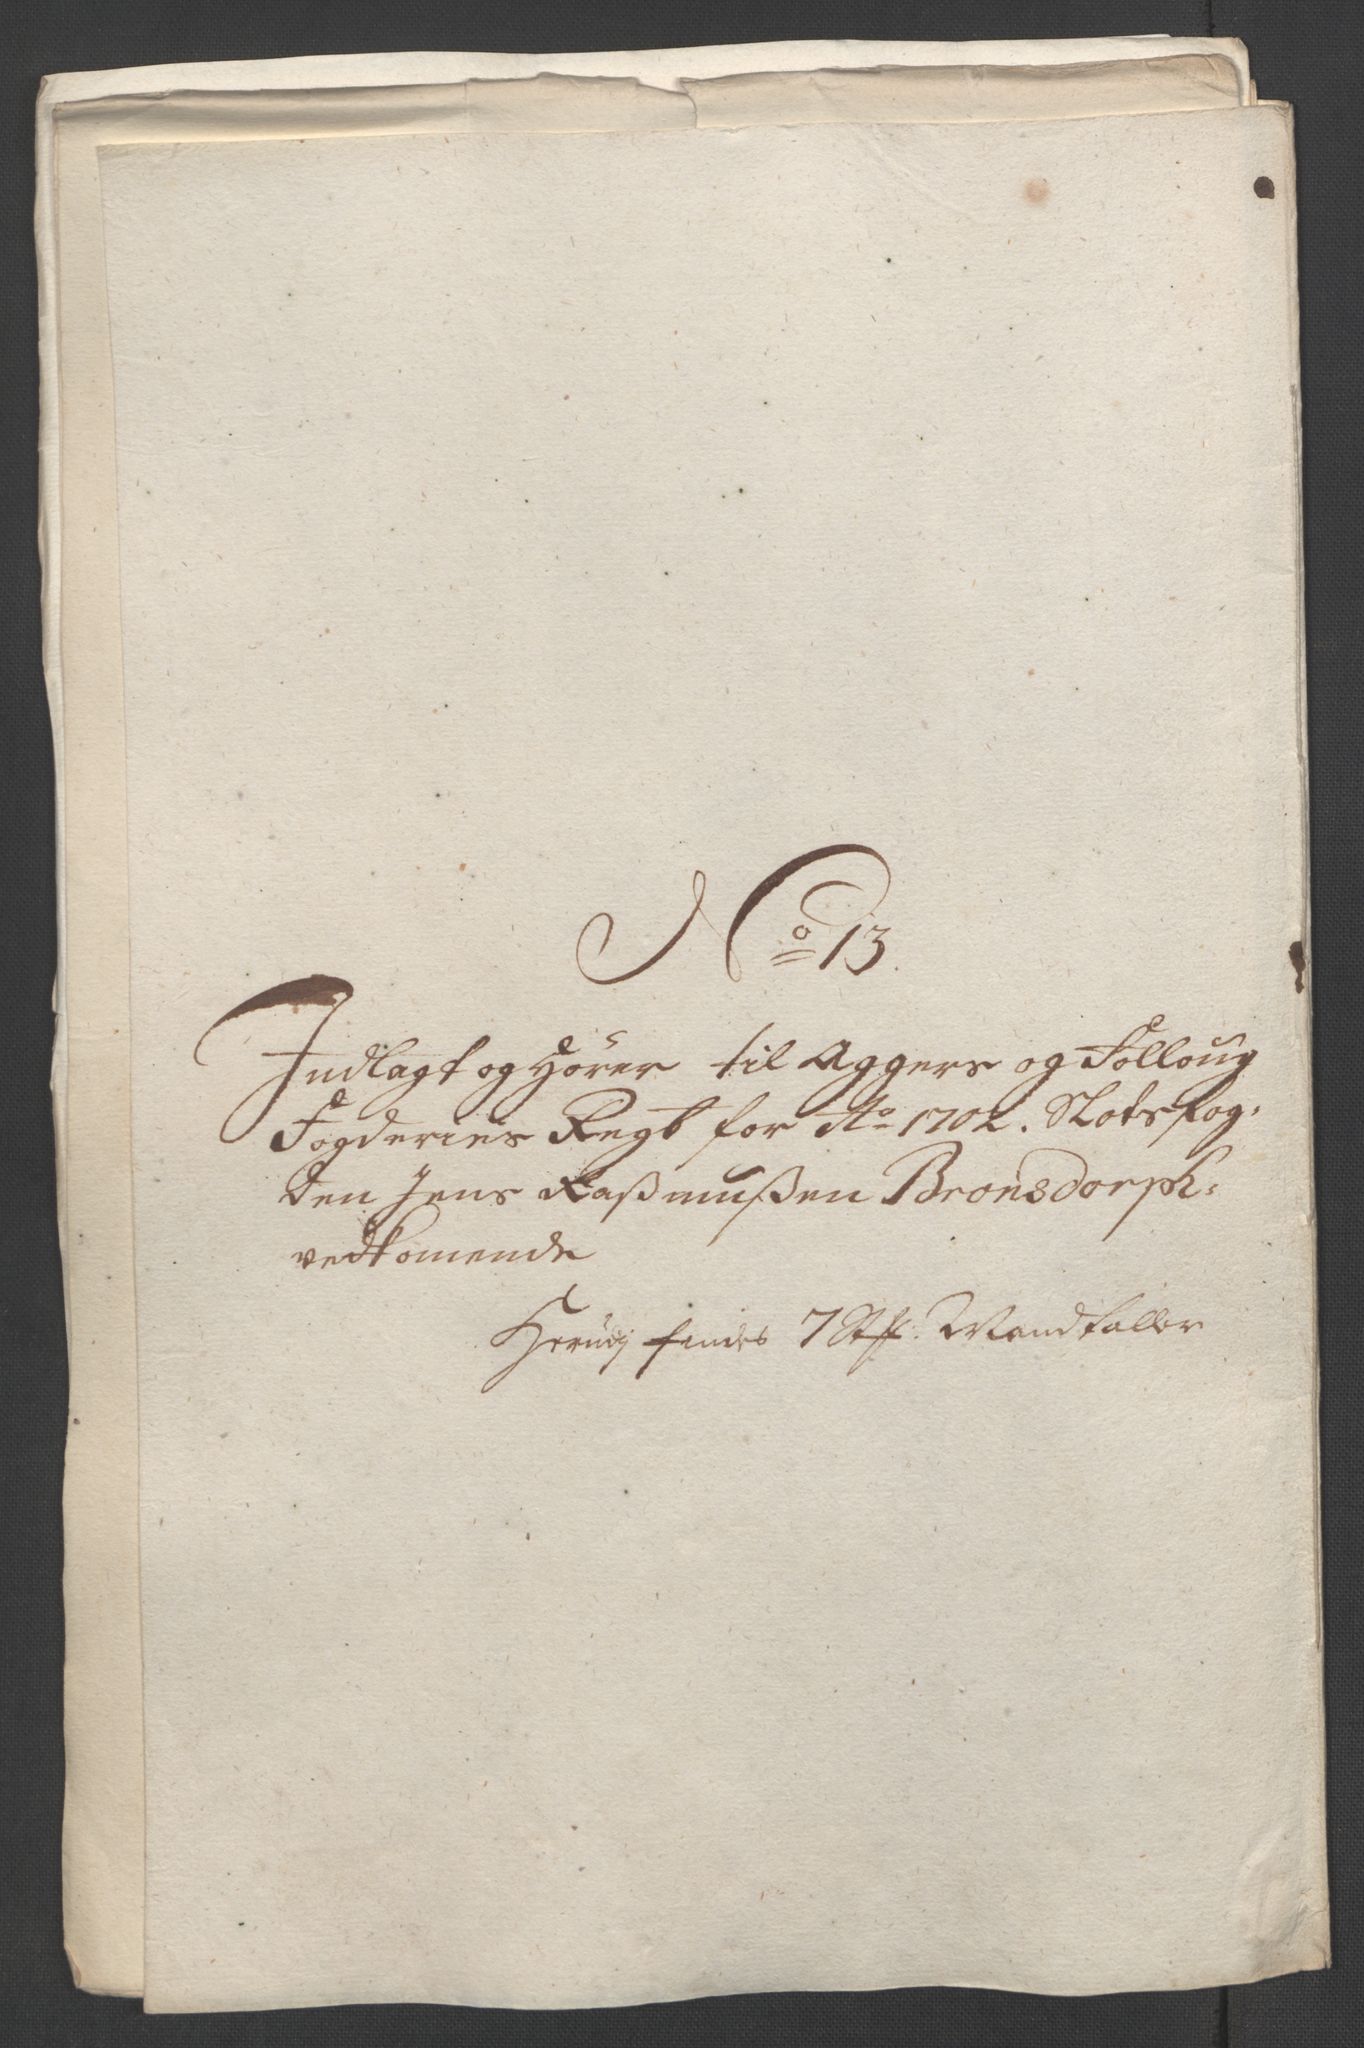 No 13.
Indlagt og Hörer til Aggers og Folloug
Fogderies Regb for Ao 1702. Slotsfog-
den Jens Raßmußen Bronsdorph:
vedkomende
Herudj findes 7 Stk: Mandtaller